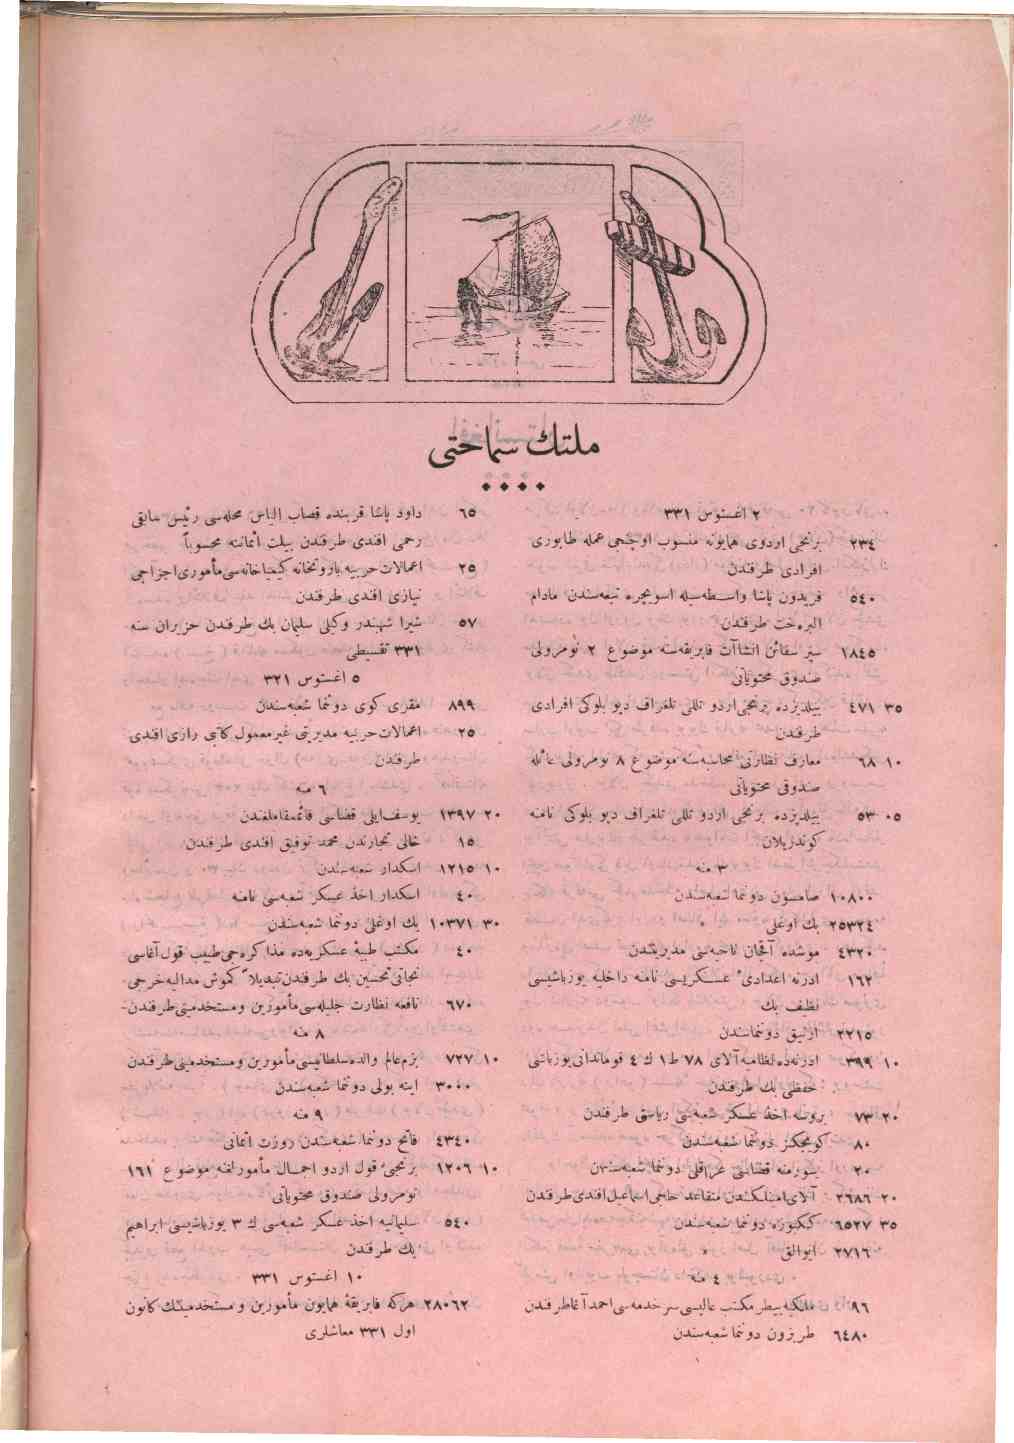 ملتك سماحتی
٢ اغستوس ٣٣١
٢٣٤ برنجی اردوی همایونه منسوب اوچنجی عمله طابوری
افرادی طرفندن
٥٤٠ فریدون پاشا واسطه‌سیله اسویچره تبعه‌سندن مادام
طرفندن
١٨٤٥ سیر سفائن انشاآت فابریقه‌سنه موضوع ٢ نومرولی
صندوق محتویاتی
٣٥ ٤٧١ ییلدیزده برنجی اردو تللی تلغراف دپو بلوکی افرادی
طرفندن
١٠ ٦٨ معارف نظارتی محاسبه‌سنه موضوع ٨ نومرولی عائله
صندوقی محتویاتی
٠٥ ٥٣ ییلدیزده برنجی اردو تللی تلغراف دپو بلوکی نامنه
کوندریلان
٣ منه
١٠٨٠٠ صامسون دونما شعبه‌سندن
٢٥٣٢٤ بك اوغلی
٤٣٢٠ موشده آقجان ناحیه‌سی مدیریتندن
١٦٢ ادرنه اعدادیٔ عسکریسی نامنه داخلیه یوزباشیسی
نظیف بك
٢٢١٥ ازنیق دونماسندن
١٠ ٣٩٩ ادرنه‌ده نظامیه آلای ٧٨ ط ١ ك ٤ قوماندانی یوزباشی
حفظی بك طرفندن
٢٠ ٧٣ بروسه اخذ عسکر شعبه‌سی ریاستی طرفندن
٨٠ کویجکز دونما شعبه‌سندن
٢٠ سورمنه قضاسی دونما شعبه‌سندن
٢٠ ٢٦٨٦ آلای امینلکندن متقاعد حاجی اسماعیل افندی طرفندن
٣٥ ٦٥٢٧ ککبوزه دونما شعبه‌سندن
٢٧١٦ ایوالق
٤ منه
٩٦ ملکیه بیطر مکتب عالیسی سرخدمه‌سی احمد آغا طرفندن
٦٤٨٠ طربزون دونما شعبه‌سندن
٦٥ داود پاشا قربنده قصاب الیاس محله‌سی رئیس سابقی
رحمی افندی طرفندن بیلت اثماننه محسوباً
٢٥ اعمالات حربیه باروتخانه کیمیاخانه‌سی مأموری اجزاجی
نیازی افندی طرفندن
٥٧ شیرا شهبندر وکیلی سلیمان بك طرفندن حزیران سنه
٣٣١ تقسیطی
٥ اغستوس ٣٢١
٨٩٩ مقری کوی دونما شعبه‌سندن
٢٥ اعمالات حربیه مدیریتی غیرمعمول کاتبی رازی افندی
طرفندن
٦ منه
٢٠ ١٣٩٧ یوسف‌ایلی قضاسی قائمقاملغندن
١٥ خالی تجارندن محمد توفیق افندی طرفندن
١٠ ١٢١٥ اسکدار شعبه‌سندن
٤٠ اسکدار اخذ عسکر شعبه‌سی نامنه
٣٠ ١٠٣٧١ بك اوغلی دونما شعبه‌سندن
٤٠ مکتب طبیهٔ عسکریه‌ده مذاکره‌جی طبیب قول آغاسی
نجاتی تحسین بك طرفندن تبدیلاً کموش مدالیه خرجی
٦٧٠ نافعه نظارت جلیله‌سی مأمورین و مستخدمینی طرفندن
٨ منه
١٠ ٧٢٧ بزم عالم والده سلطانیسی مأمورین ومستخدمینی طرفندن
٣٠٠٠ اینه بولی دونما شعبه‌سندن
٩ منه
٤٣٤٠ فاتح دونما شعبه‌سندن روزت اثمانی
١٠ ١٢٠٦ برنجی قول اردو مأمورلغنه موضوع ١٦١
نومرولی صندوق محتویاتی
٥٤٠ سلیمانیه اخذ عسکر شعبه‌سی ك ٣ یوزباشیسی ابراهیم
بك طرفندن
١٠ اغستوس ٣٣١
٢٨٠٦٢ هرکه فابریقهٔ همایون مأمورین و مستخدمینك کانون
اول ٣٣١ معاشلری